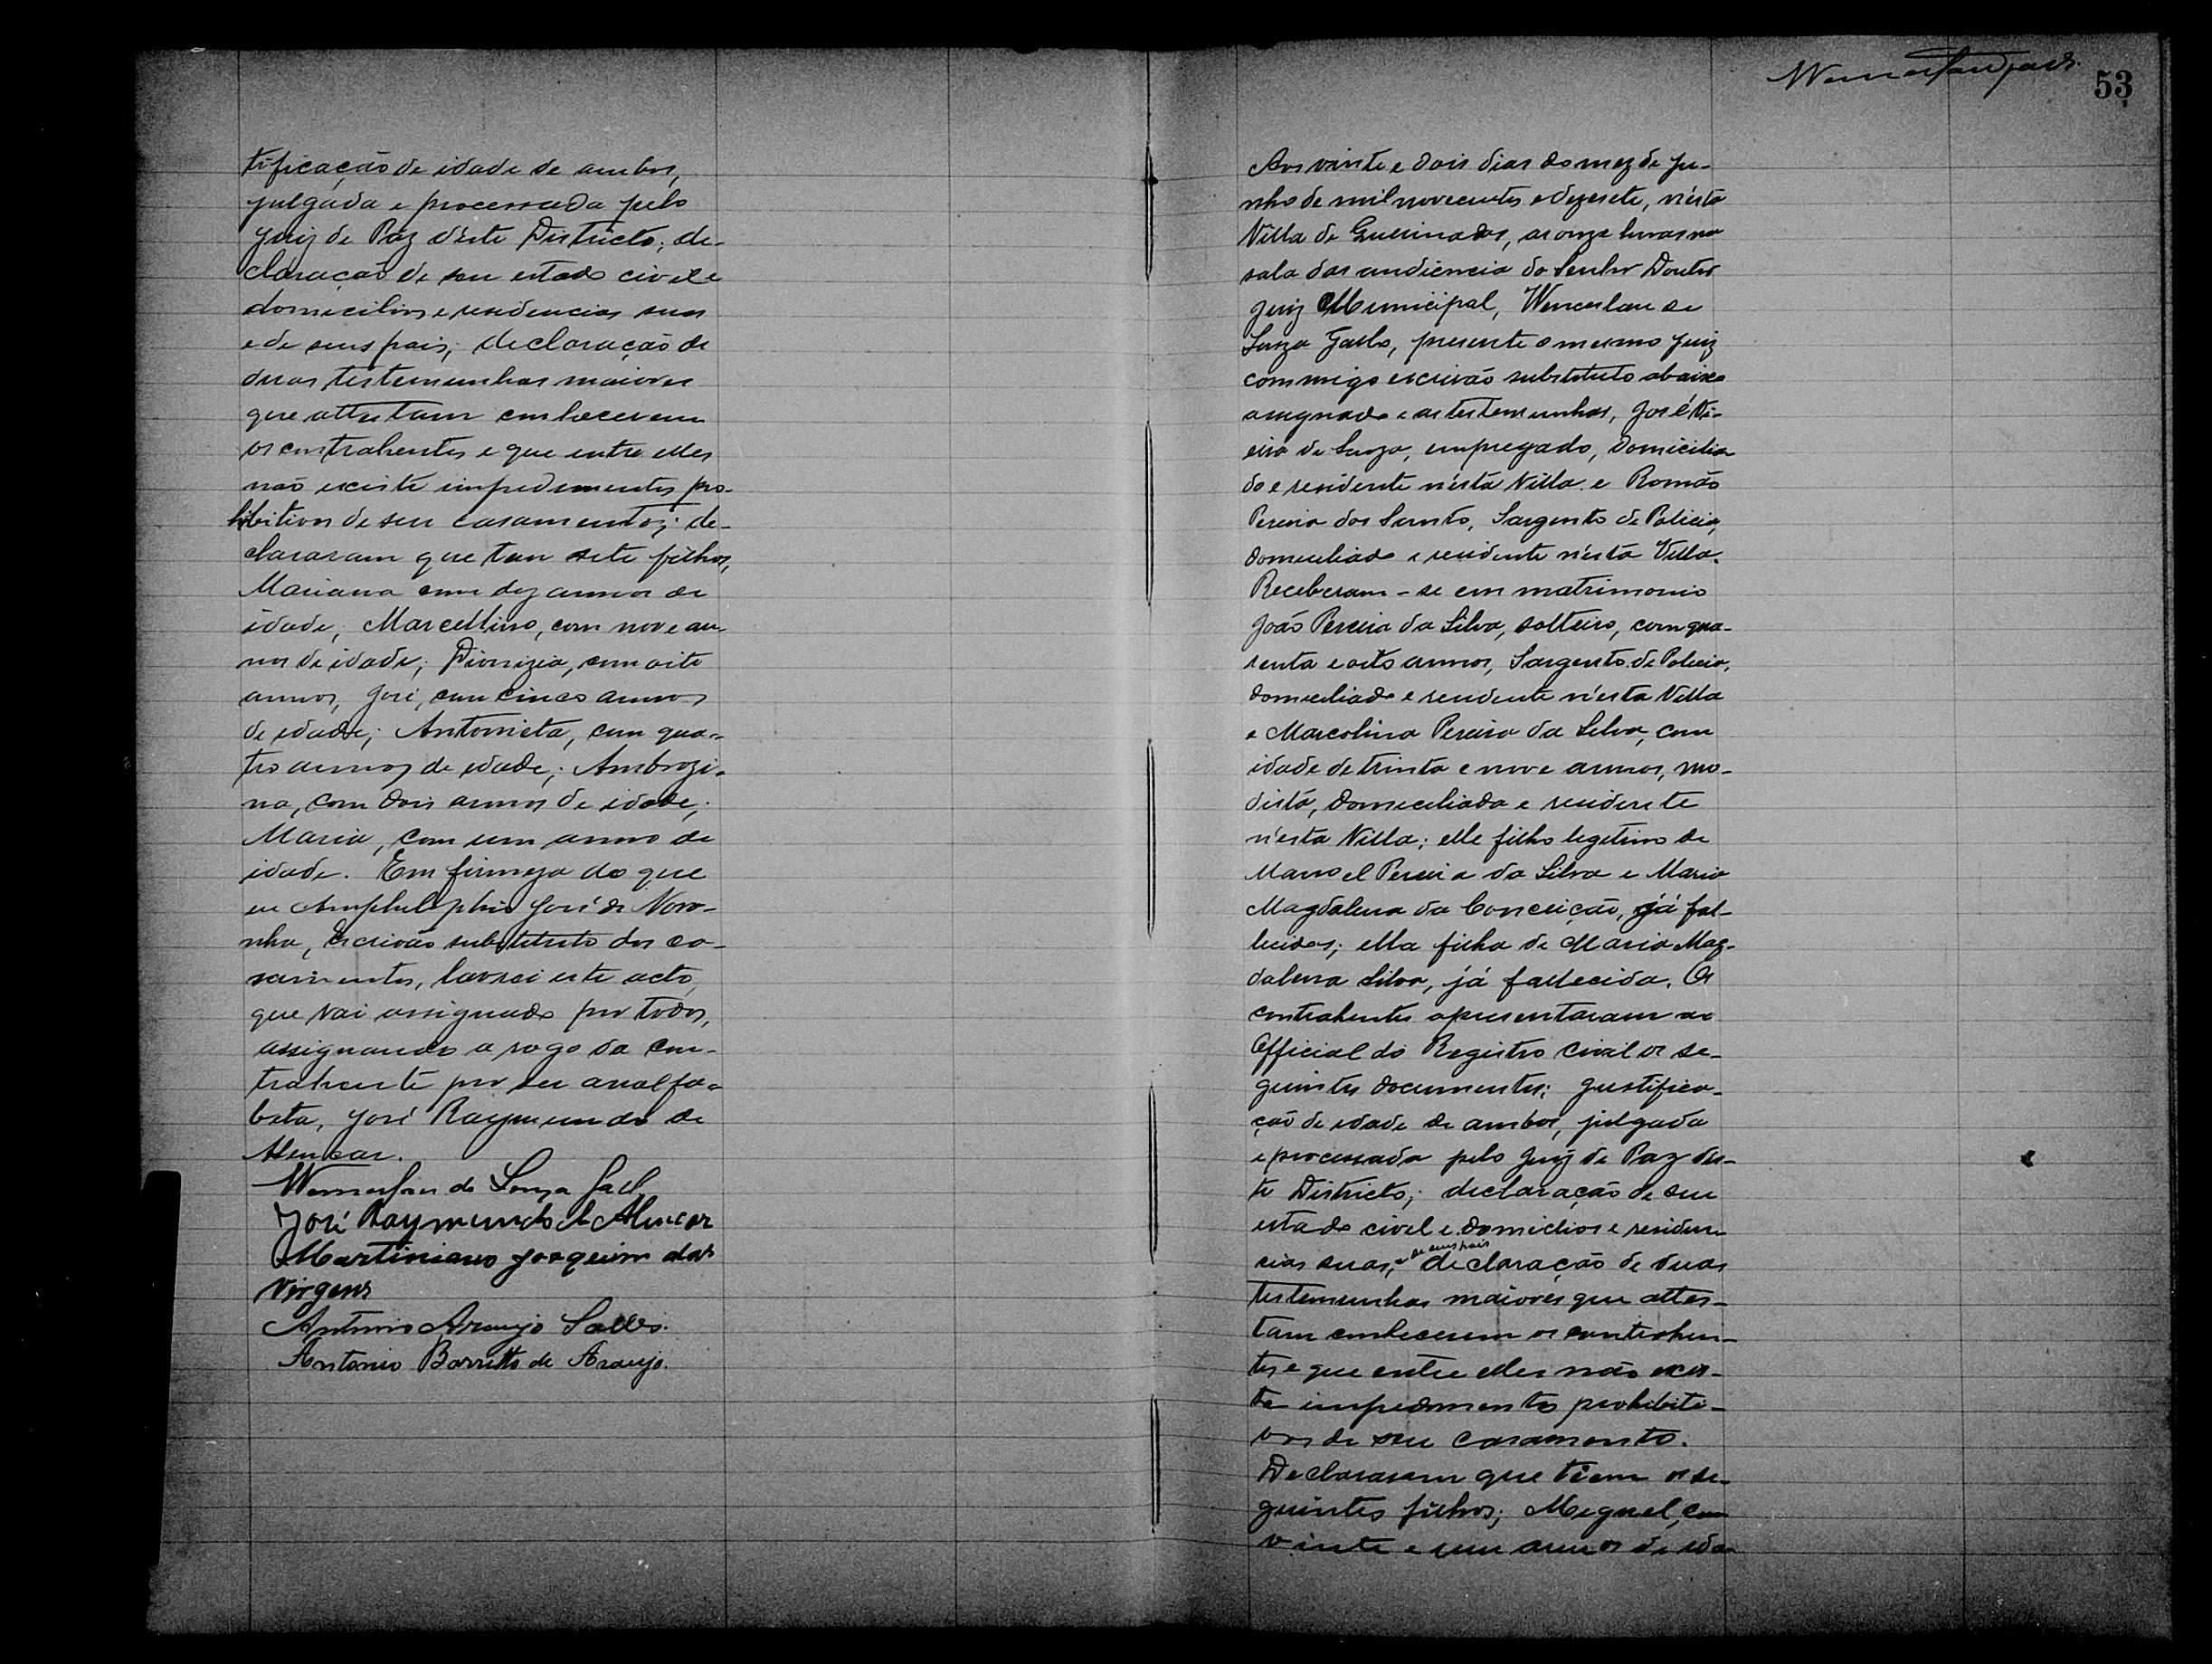 tificação de idade de ambos,
julgada e processada pelo
Juiz de Paz d'este Districto; de-
claração de seu estado civil e
domicilios e residencias suas
e de seus pais; declaração de
duas testemunhas maiores
que attestam conhecerem
os contrahentes e que entre elles
não existe impedimentos pro-
hibitivos de seu casamento; de-
clararam que tem sete filhos,
Mariana com dez annos de
idade, Marcellino, com nove an-
nos de idade; Dionizia, com oito
annos, José, com cinco annos
de idade; Antonieta, com qua-
tro annos de idade; Ambrozi-
na, com dois annos de idade;
Maria, com um anno de
idade. Em firmeza do que
eu Amphilophio José de Noro-
nha, Escrivão substituto dos ca-
samentos, lavrei este acto,
que vai assignado por todos,
assignando a rogo da con-
trahente por ser analfa-
beta, José Raymundo de
Alencar.
Wenceslau de Souza
José Raymundo de Alencar
Martiniano Joaquim das
Virgens
Antonio Araujo Salles.
Antonio Barretto de Araujo.
53
Aos vinte e dois dias do mez de Ju-
nho de mil novecentos e dezesete, n'esta
Villa de, as onze horas na
sala das audiencia do Senhor Doutor
Juiz Municipal, Wenceslau de
Souza, presente o mesmo Juiz
commigo escrivão substituto abaixo
assignado e as testemunhas, José Vi-
eira de Souza, empregado, domicilia
do e residente n'esta Villa e Romão
Pereira dos Santos, Sargento de Policia,
domiciliado e residente n'esta Villa.
Receberam-se em matrimonio
João Pereira da Silva, solteiro, com qua-
renta e oito annos, Sargento de Policia,
domiciliado e residente n'esta Villa
e Marcolina Pereira da Silva, com
idade de trinta e nove annos, mo-
dista, domiciliada e residente
n'esta Villa; elle filho legitimo de
Manoel Pereira da Silva e Maria
Magdalena da Conceição, já fal-
lecidos; ella filha de Maria Mag-
dalena Silva, já fallecida. Os
contrahentes apresentaram ao
Official do Registro Civil os se-
guintes documentos; justifica-
ção de idade de ambos, julgada
e processada pelo Juiz de Paz des-
te Districto; declaração de seu
estado civil e domicilios e residen
cias suas, e de seus pais declaração de duas
testemunhas maiores que attes-
tam conhecerem os contrahen-
tes e que entre elles não exis-
te impedimentos prohibiti-
vos de seu casamento.
Declararam que têem os se-
guintes filhos; Miguel, com
vinte e um annos de ida